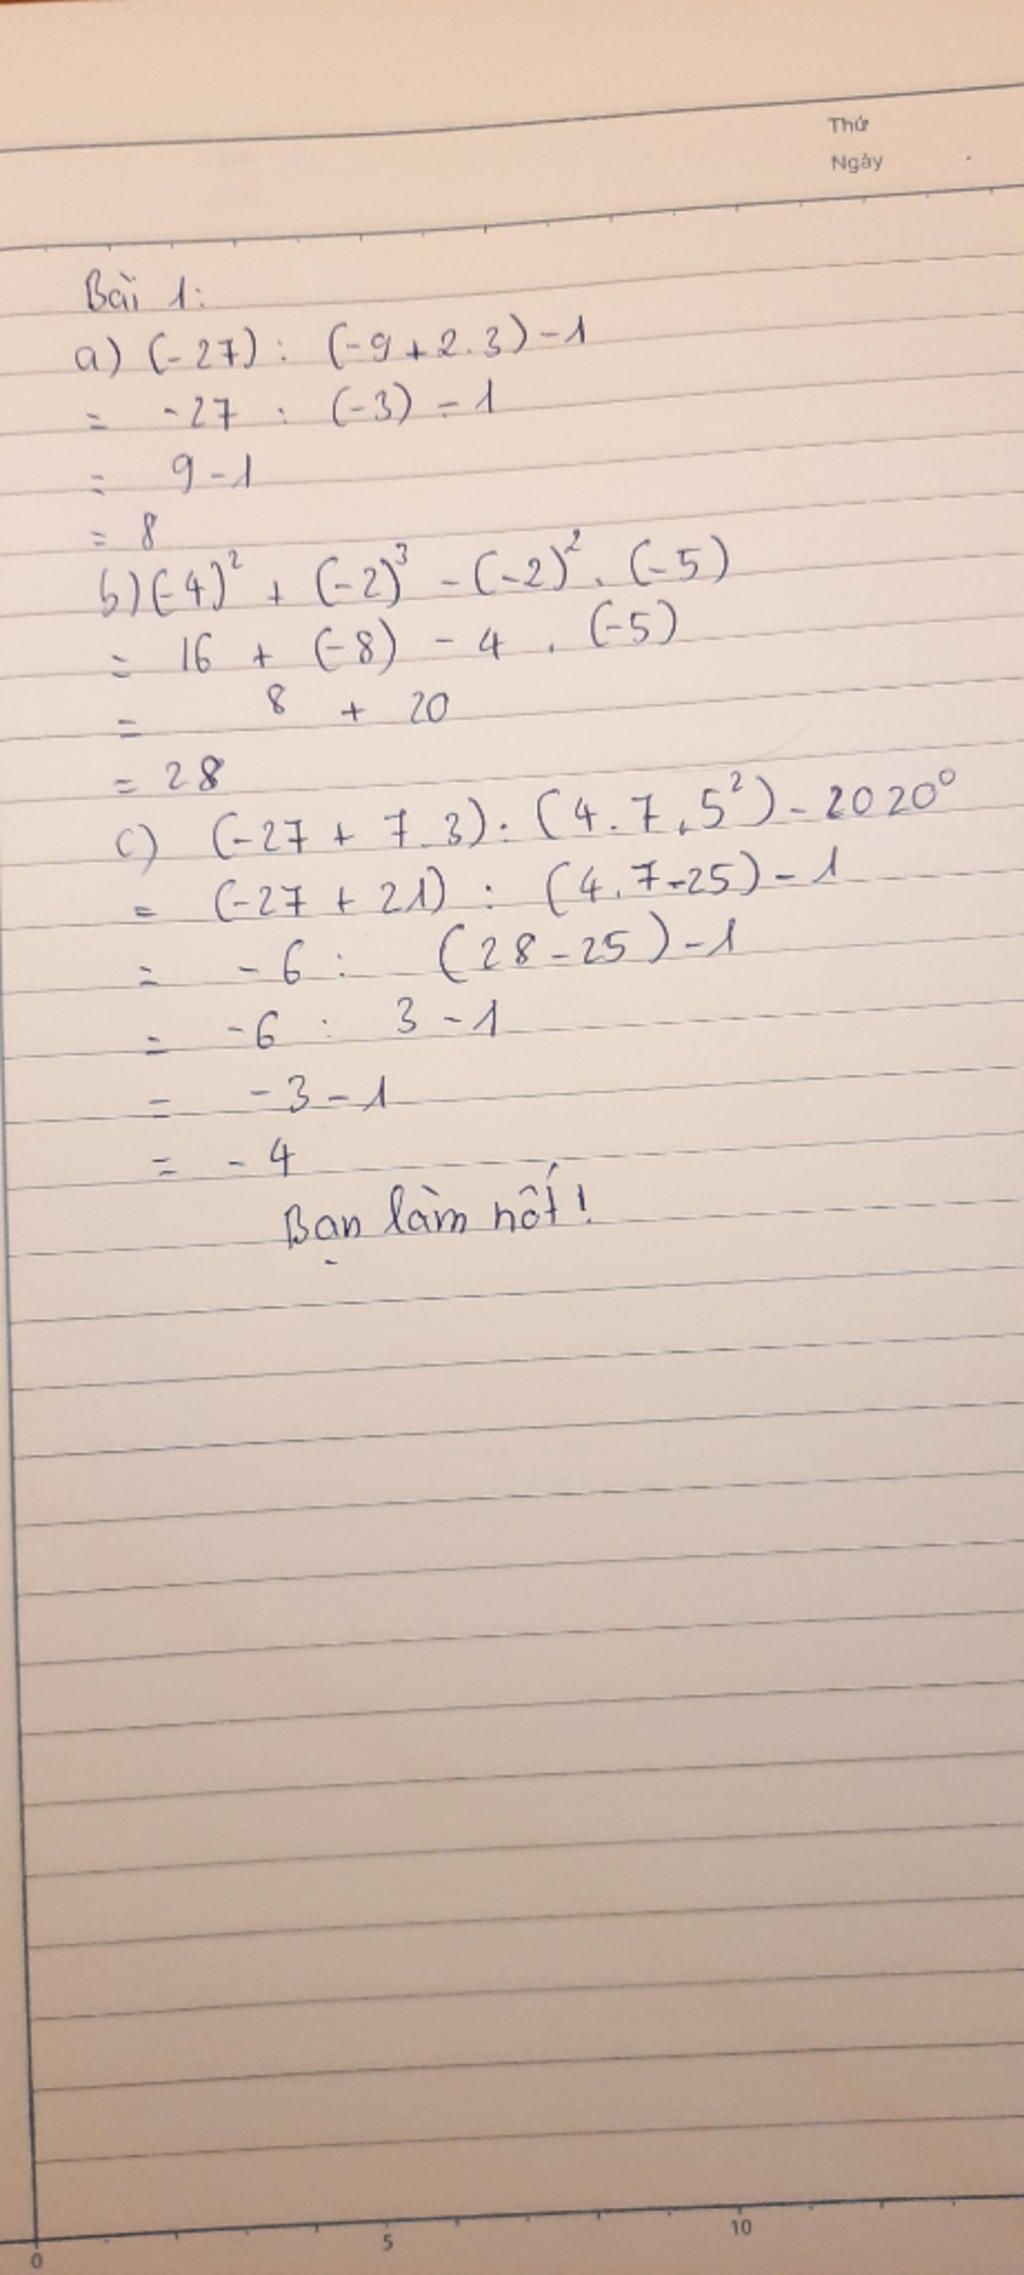 Thứ
Ngày
Bài 1:
a) (-27) : (-9 + 2.3) - 1
= -27 : (-3) - 1
= 9 - 1
= 8
b) (-4)² + (-2)³ - (-2)² . (-5)
= 16 + (-8) - 4 . (-5)
= 8 + 20
= 28
c) (-27 + 7.3) : (4.7.5²) - 2020⁰
= (-27 + 21) : (4.7-25) - 1
= -6 : (28-25) - 1
= -6 : 3 - 1
= -3 - 1
= -4
Bạn làm nốt!
0 5 10